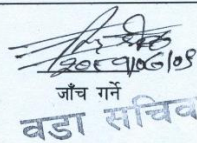 २०८१/०७/०९
जाँच गर्ने
वडा सचिव